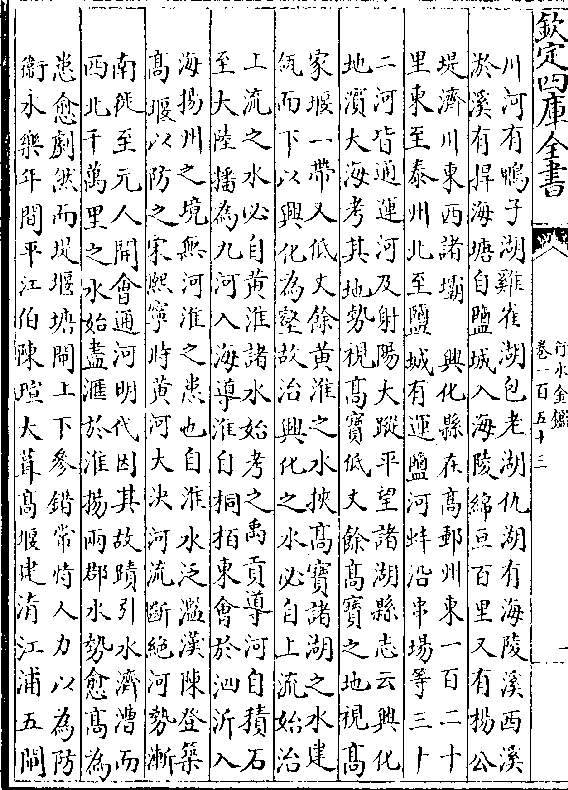 欽定四庫全書
行水金鑑
卷一百五十三
川河有鴨子湖雞雀湖包老湖仇湖有海陵溪西溪
淤溪有捍海塘自鹽城入海陵綿亘百里又有楊公
堤濟川東西諸壩　興化縣在高郵州東一百二十
里東至泰州北至鹽城有運鹽河蚌沿串場等三十
二河皆通運河及射陽大蹤平望諸湖縣志云興化
地濱大海考其地勢視高寶低丈餘高寶之地視高
家堰一帶又低丈餘黃淮之水挾高寶諸湖之水建
瓴而下以興化為壑故治興化之水必自上流始治
上流之水必自黃淮諸水始考之禹貢導河自積石
至大陸播為九河入海導淮自桐栢東會於泗沂入
海揚州之境無河淮之患也自淮水泛濫漢陳登築
高堰以防之宋熙寧時黃河大決河流斷絕河勢漸
南徙至元人開會通河明代因其故蹟引水濟漕而
西北千萬里之水始盡滙於淮揚兩郡水勢愈高為
患愈劇然而堤堰塘閘上下參錯常恃人力以為防
衛永樂年間平江伯陳瑄大葺高堰建清江浦五閘